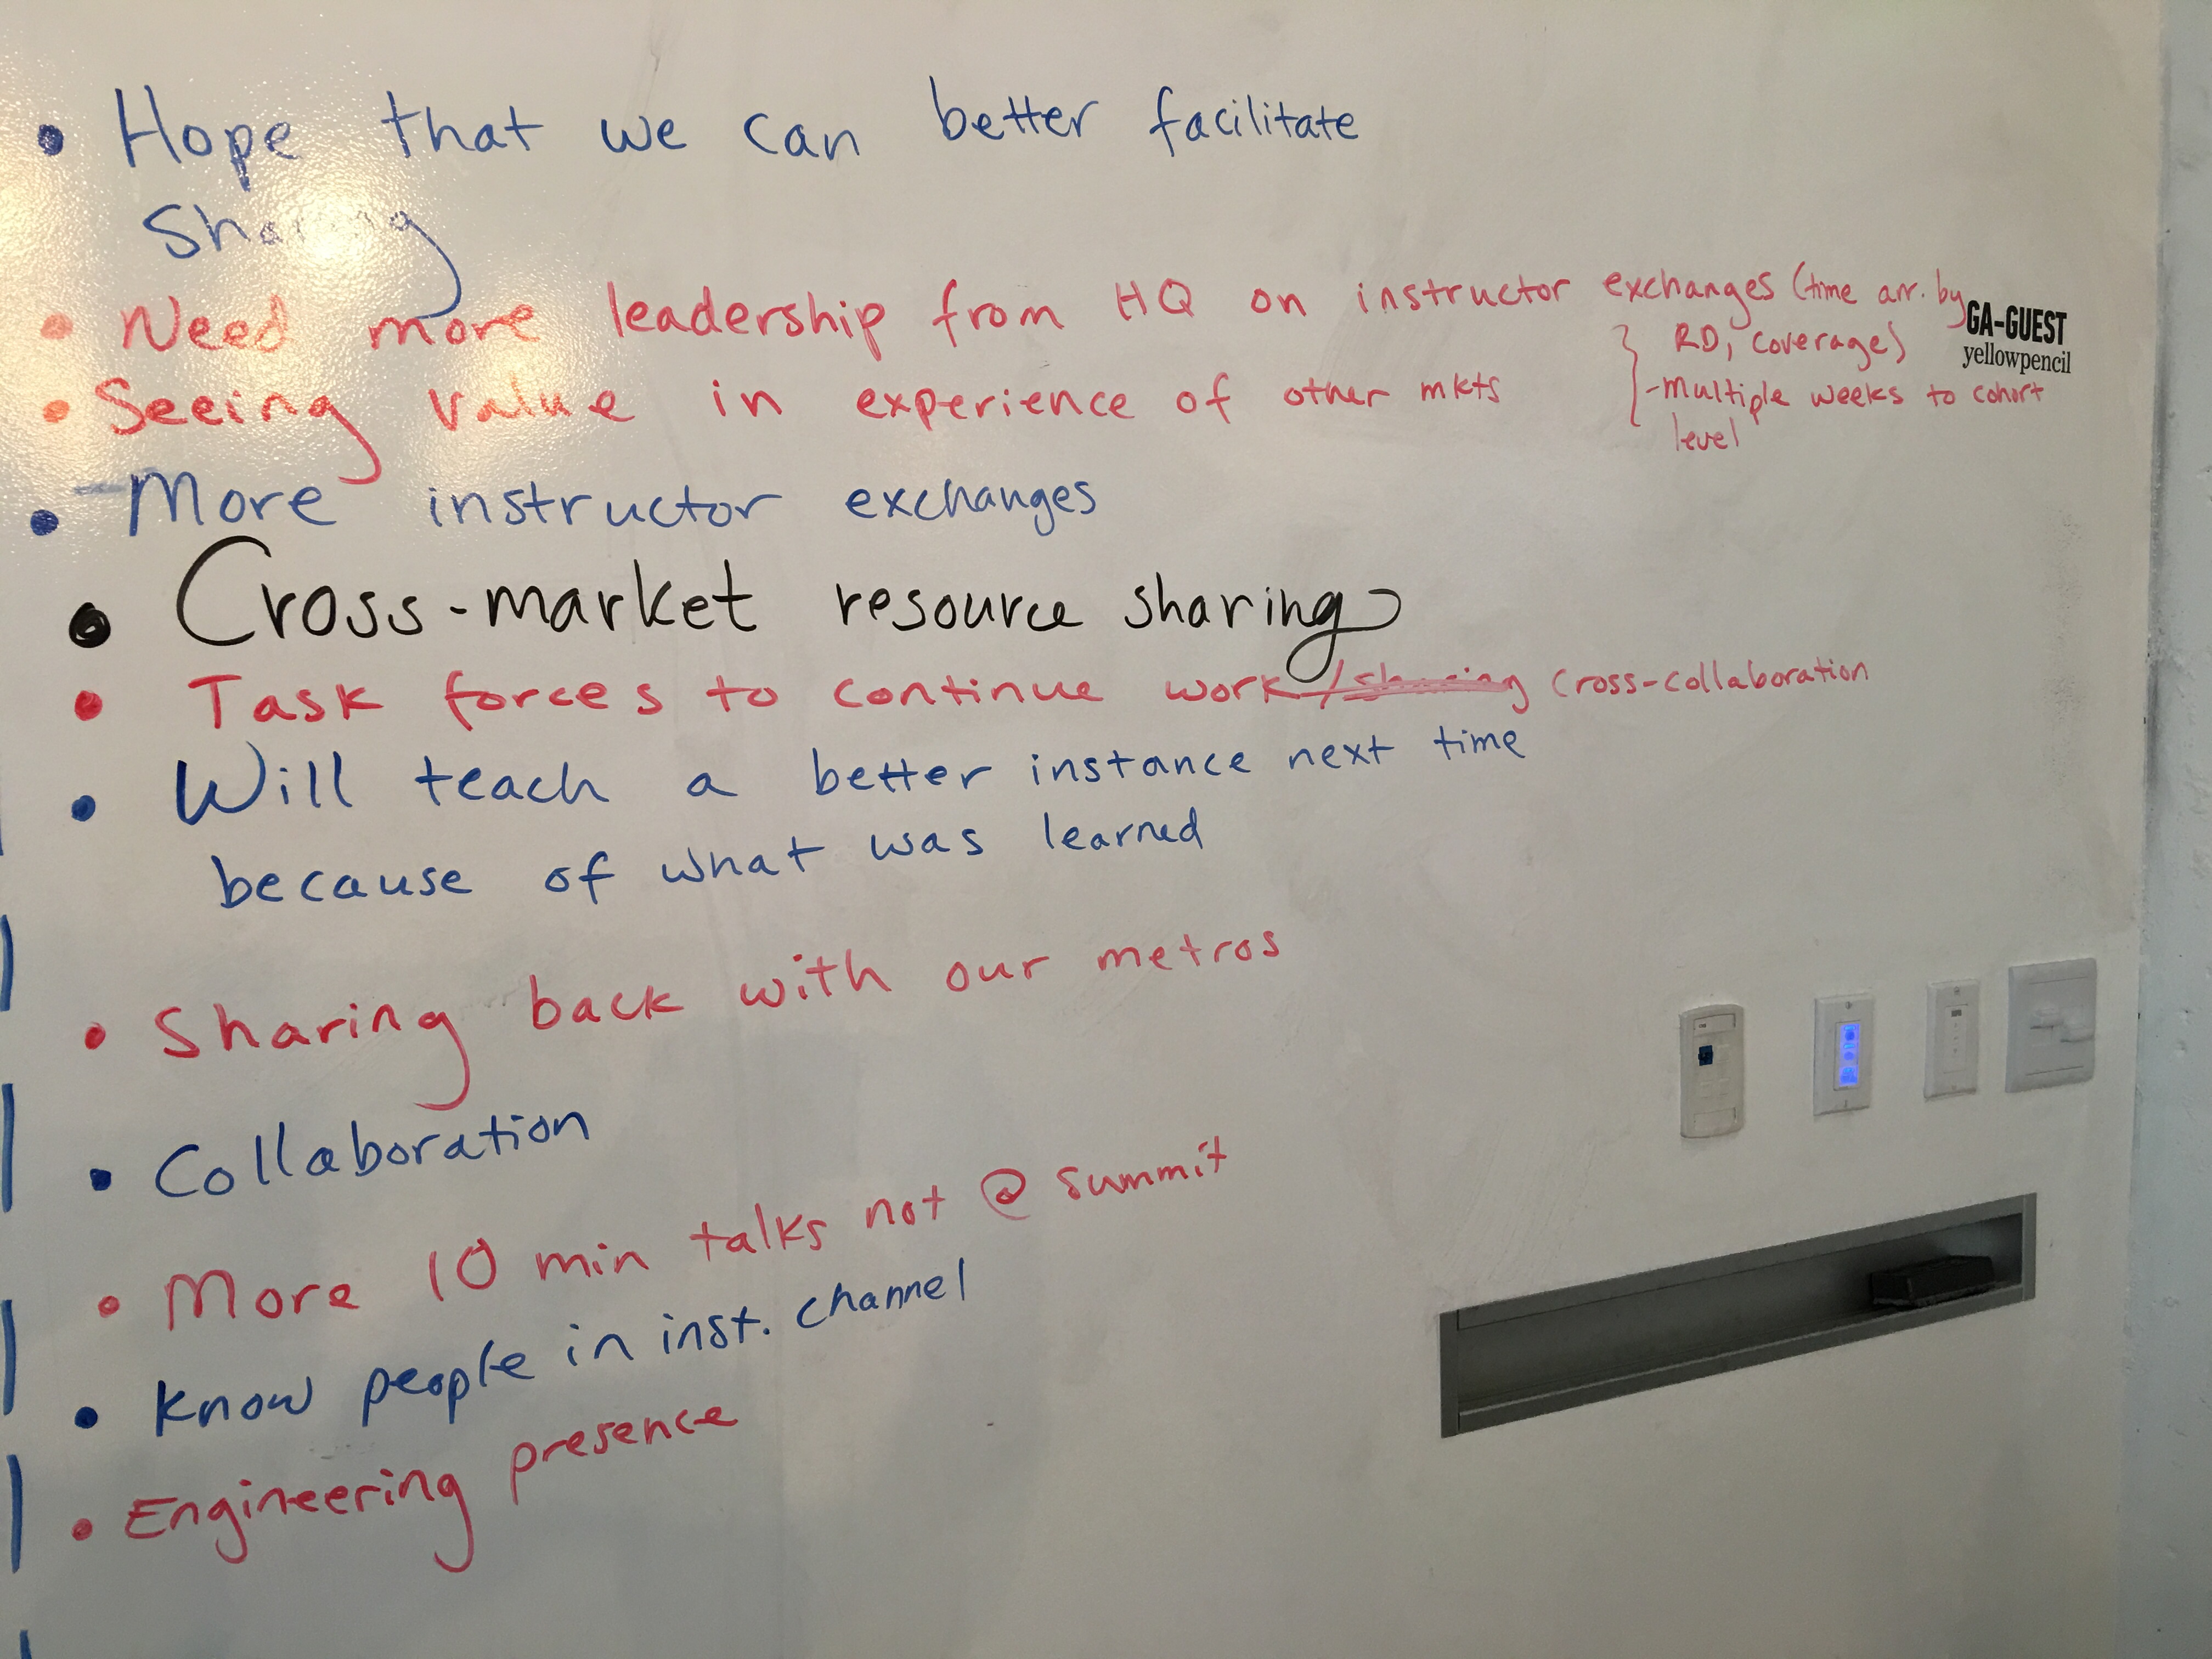 • Hope that we can better facilitate
Sharing
• Need more leadership from HQ on instructor exchanges (time arr. by
RD, coverage)
GA-GUEST
yellowpencil
• Seeing value in experience of other mkts
- multiple weeks to cohort
level
• More instructor exchanges
• Cross-market resource sharing
• Task forces to continue work /sharing cross-collaboration
• Will teach a better instance next time
because of what was learned
• Sharing back with our metros
• Collaboration
• More 10 min talks not @ summit
• Know people in inst. channel
• Engineering presence